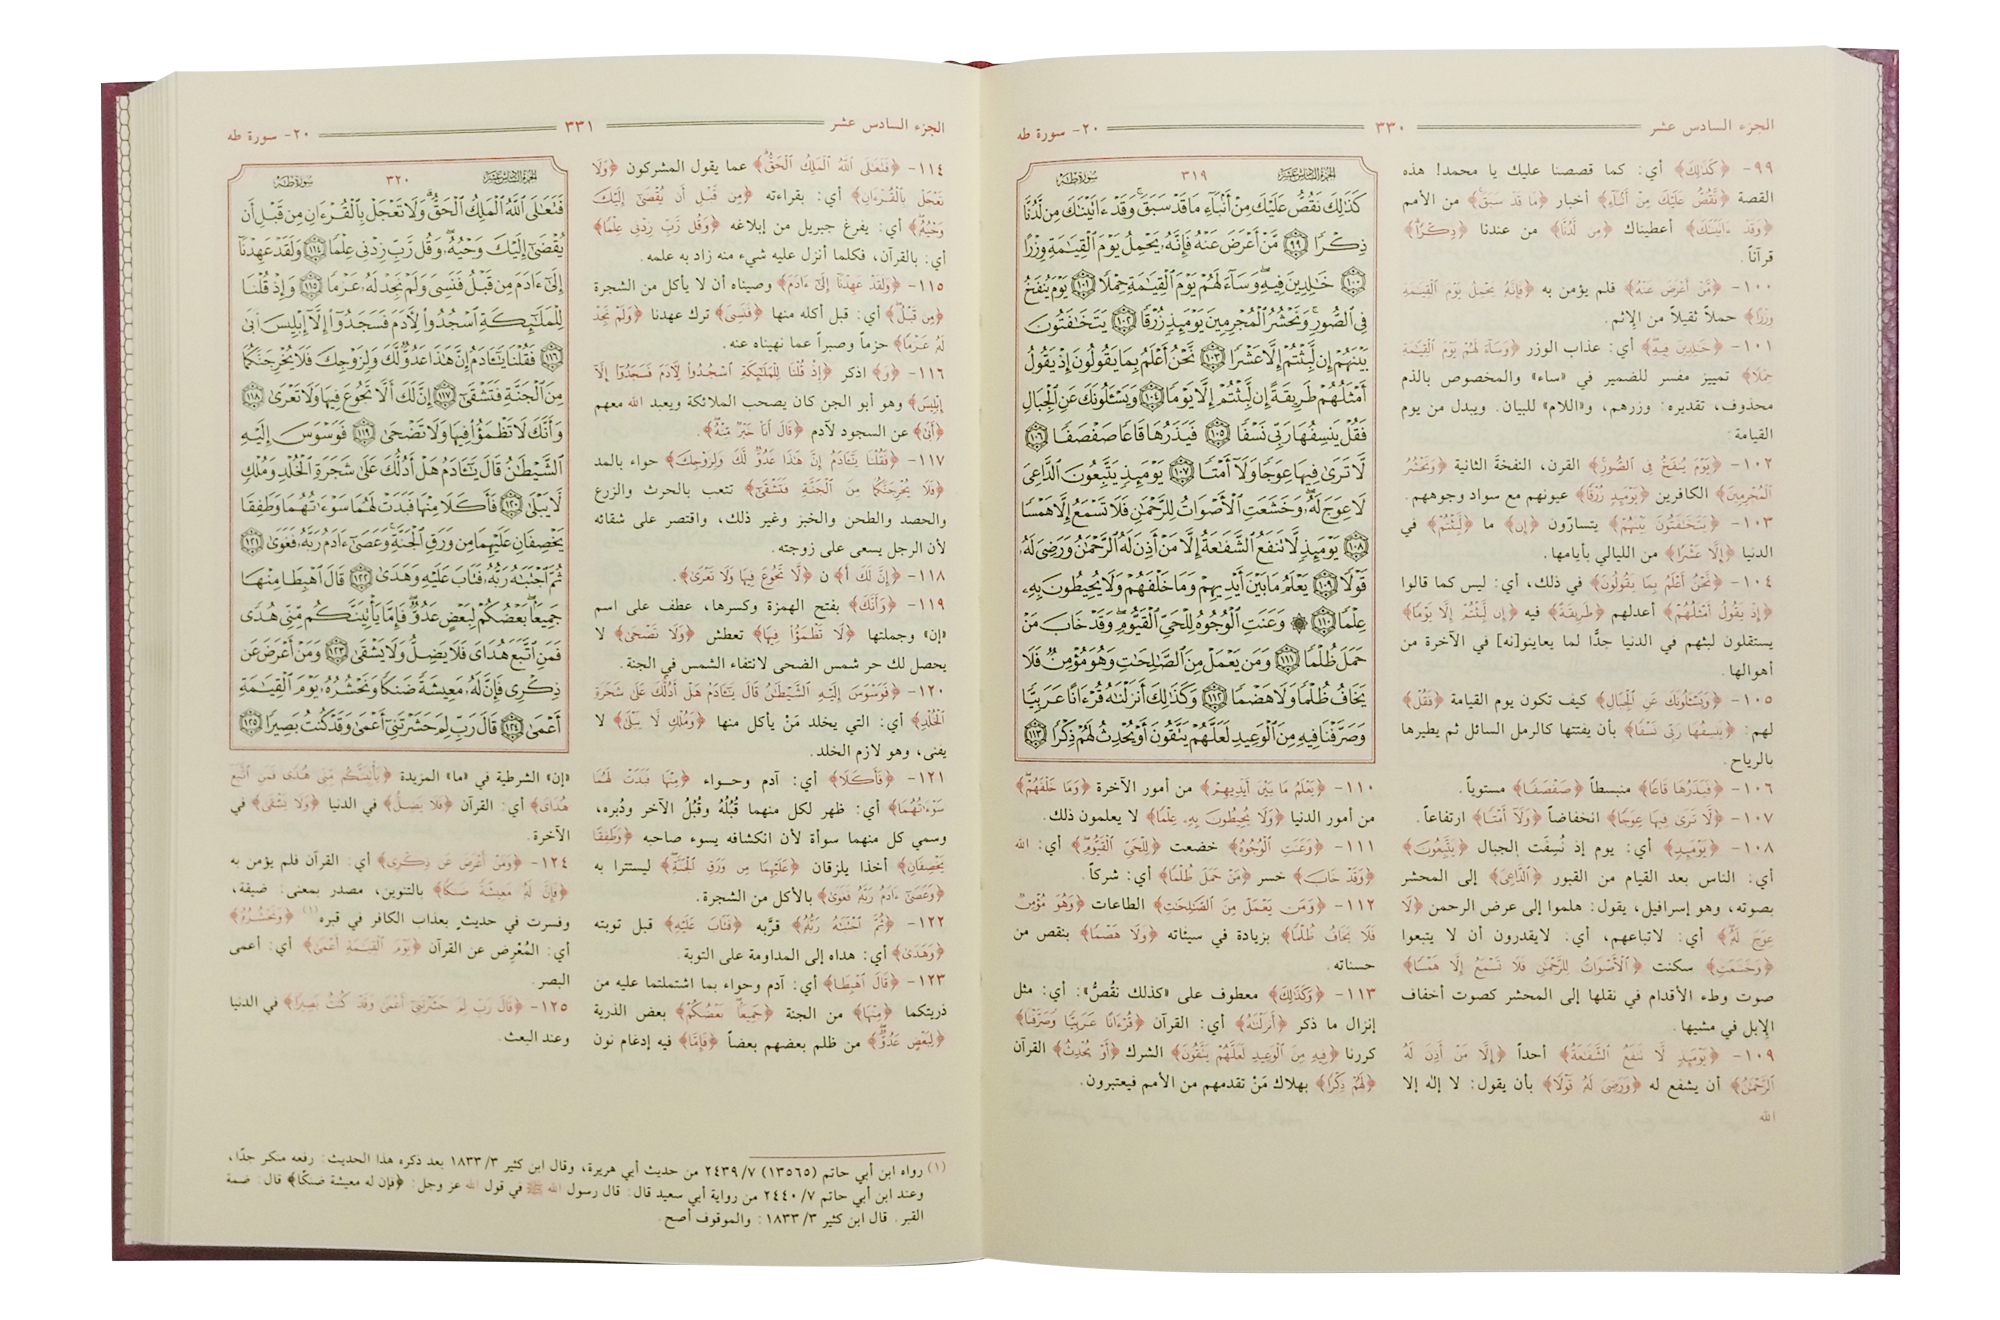 الجزء السادس عشر ٣٣٠ ٢٠- سورة طه
٩٩- ﴿كَذَٰلِكَ﴾ أي: كما قصصنا عليك يا محمد! هذه
القصة ﴿نَقُصُّ عَلَيْكَ مِنْ أَنۢبَآءِ﴾ أخبار ﴿مَا قَدْ سَبَقَ﴾ من الأمم
﴿وَقَدْ ءَاتَيْنَٰكَ﴾ أعطيناك ﴿مِن لَّدُنَّا﴾ من عندنا ﴿ذِكْرًا﴾
قرآناً.
١٠٠- ﴿مَّنْ أَعْرَضَ عَنْهُ﴾ فلم يؤمن به ﴿فَإِنَّهُۥ يَحْمِلُ يَوْمَ ٱلْقِيَٰمَةِ
وِزْرًا﴾ حملاً ثقيلاً من الإثم.
١٠١- ﴿خَٰلِدِينَ فِيهِ﴾ أي: عذاب الوزر ﴿وَسَآءَ لَهُمْ يَوْمَ ٱلْقِيَٰمَةِ
حِمْلًا﴾ تمييز مفسر للضمير في «ساء» والمخصوص بالذم
محذوف، تقديره: وزرهم، و«اللام» للبيان. ويبدل من يوم
القيامة:
١٠٢- ﴿يَوْمَ يُنفَخُ فِى ٱلصُّورِ﴾ القرن، النفخة الثانية ﴿وَنَحْشُرُ
ٱلْمُجْرِمِينَ﴾ الكافرين ﴿يَوْمَئِذٍ زُرْقًا﴾ عيونهم مع سواد وجوههم.
١٠٣- ﴿يَتَخَٰفَتُونَ بَيْنَهُمْ﴾ يتسارّون ﴿إِن﴾ ما ﴿لَّبِثْتُمْ﴾ في
الدنيا ﴿إِلَّا عَشْرًا﴾ من الليالي بأيامها.
١٠٤- ﴿نَّحْنُ أَعْلَمُ بِمَا يَقُولُونَ﴾ في ذلك، أي: ليس كما قالوا
﴿إِذْ يَقُولُ أَمْثَلُهُمْ﴾ أعدلهم ﴿طَرِيقَةً﴾ فيه ﴿إِن لَّبِثْتُمْ إِلَّا يَوْمًا﴾
يستقلون لبثهم في الدنيا جدًّا لما يعاينو[نه] في الآخرة من
أهوالها.
١٠٥- ﴿وَيَسْـَٔلُونَكَ عَنِ ٱلْجِبَالِ﴾ كيف تكون يوم القيامة ﴿فَقُلْ﴾
لهم: ﴿يَنسِفُهَا رَبِّى نَسْفًا﴾ بأن يفتتها كالرمل السائل ثم يطيرها
بالرياح.
١٠٦- ﴿فَيَذَرُهَا قَاعًا﴾ منبسطاً ﴿صَفْصَفًا﴾ مستوياً.
١٠٧- ﴿لَّا تَرَىٰ فِيهَا عِوَجًا﴾ انخفاضاً ﴿وَلَآ أَمْتًا﴾ ارتفاعاً.
١٠٨- ﴿يَوْمَئِذٍ﴾ أي: يوم إذ نُسِفَت الجبال ﴿يَتَّبِعُونَ﴾
أي: الناس بعد القيام من القبور ﴿ٱلدَّاعِىَ﴾ إلى المحشر
بصوته، وهو إسرافيل، يقول: هلموا إلى عرض الرحمن ﴿لَا
عِوَجَ لَهُۥ﴾ أي: لاتباعهم، أي: لايقدرون أن لا يتبعوا
﴿وَخَشَعَتِ﴾ سكنت ﴿ٱلْأَصْوَاتُ لِلرَّحْمَٰنِ فَلَا تَسْمَعُ إِلَّا هَمْسًا﴾
صوت وطء الأقدام في نقلها إلى المحشر كصوت أخفاف
الإبل في مشيها.
١٠٩- ﴿يَوْمَئِذٍ لَّا تَنفَعُ ٱلشَّفَٰعَةُ﴾ أحداً ﴿إِلَّا مَنْ أَذِنَ لَهُ
ٱلرَّحْمَٰنُ﴾ أن يشفع له ﴿وَرَضِىَ لَهُۥ قَوْلًا﴾ بأن يقول: لا إله إلا
الله
الجزء السادس عشر ٣١٩ سورة طه
كَذَٰلِكَ نَقُصُّ عَلَيْكَ مِنْ أَنۢبَآءِ مَا قَدْ سَبَقَ ۚ وَقَدْ ءَاتَيْنَٰكَ مِن لَّدُنَّا
ذِكْرًا ٩٩ مَّنْ أَعْرَضَ عَنْهُ فَإِنَّهُۥ يَحْمِلُ يَوْمَ ٱلْقِيَٰمَةِ وِزْرًا
١٠٠ خَٰلِدِينَ فِيهِ ۖ وَسَآءَ لَهُمْ يَوْمَ ٱلْقِيَٰمَةِ حِمْلًا ١٠١ يَوْمَ يُنفَخُ
فِى ٱلصُّورِ ۚ وَنَحْشُرُ ٱلْمُجْرِمِينَ يَوْمَئِذٍ زُرْقًا ١٠٢ يَتَخَٰفَتُونَ
بَيْنَهُمْ إِن لَّبِثْتُمْ إِلَّا عَشْرًا ١٠٣ نَّحْنُ أَعْلَمُ بِمَا يَقُولُونَ إِذْ يَقُولُ
أَمْثَلُهُمْ طَرِيقَةً إِن لَّبِثْتُمْ إِلَّا يَوْمًا ١٠٤ وَيَسْـَٔلُونَكَ عَنِ ٱلْجِبَالِ
فَقُلْ يَنسِفُهَا رَبِّى نَسْفًا ١٠٥ فَيَذَرُهَا قَاعًا صَفْصَفًا ١٠٦
لَّا تَرَىٰ فِيهَا عِوَجًا وَلَآ أَمْتًا ١٠٧ يَوْمَئِذٍ يَتَّبِعُونَ ٱلدَّاعِىَ
لَا عِوَجَ لَهُۥ ۖ وَخَشَعَتِ ٱلْأَصْوَاتُ لِلرَّحْمَٰنِ فَلَا تَسْمَعُ إِلَّا هَمْسًا
١٠٨ يَوْمَئِذٍ لَّا تَنفَعُ ٱلشَّفَٰعَةُ إِلَّا مَنْ أَذِنَ لَهُ ٱلرَّحْمَٰنُ وَرَضِىَ لَهُۥ
قَوْلًا ١٠٩ يَعْلَمُ مَا بَيْنَ أَيْدِيهِمْ وَمَا خَلْفَهُمْ وَلَا يُحِيطُونَ بِهِۦ
عِلْمًا ١١٠ ۞ وَعَنَتِ ٱلْوُجُوهُ لِلْحَىِّ ٱلْقَيُّومِ ۖ وَقَدْ خَابَ مَنْ
حَمَلَ ظُلْمًا ١١١ وَمَن يَعْمَلْ مِنَ ٱلصَّٰلِحَٰتِ وَهُوَ مُؤْمِنٌ فَلَا
يَخَافُ ظُلْمًا وَلَا هَضْمًا ١١٢ وَكَذَٰلِكَ أَنزَلْنَٰهُ قُرْءَانًا عَرَبِيًّا
وَصَرَّفْنَا فِيهِ مِنَ ٱلْوَعِيدِ لَعَلَّهُمْ يَتَّقُونَ أَوْ يُحْدِثُ لَهُمْ ذِكْرًا ١١٣
١١٠- ﴿يَعْلَمُ مَا بَيْنَ أَيْدِيهِمْ﴾ من أمور الآخرة ﴿وَمَا خَلْفَهُمْ﴾
من أمور الدنيا ﴿وَلَا يُحِيطُونَ بِهِۦ عِلْمًا﴾ لا يعلمون ذلك.
١١١- ﴿وَعَنَتِ ٱلْوُجُوهُ﴾ خضعت ﴿لِلْحَىِّ ٱلْقَيُّومِ﴾ أي: الله
﴿وَقَدْ خَابَ﴾ خسر ﴿مَنْ حَمَلَ ظُلْمًا﴾ أي: شركاً.
١١٢- ﴿وَمَن يَعْمَلْ مِنَ ٱلصَّٰلِحَٰتِ﴾ الطاعات ﴿وَهُوَ مُؤْمِنٌ
فَلَا يَخَافُ ظُلْمًا﴾ بزيادة في سيئاته ﴿وَلَا هَضْمًا﴾ بنقص من
حسناته.
١١٣- ﴿وَكَذَٰلِكَ﴾ معطوف على «كذلك نقُصُّ»: أي: مثل
إنزال ما ذكر ﴿أَنزَلْنَٰهُ﴾ أي: القرآن ﴿قُرْءَانًا عَرَبِيًّا وَصَرَّفْنَا﴾
كررنا ﴿فِيهِ مِنَ ٱلْوَعِيدِ لَعَلَّهُمْ يَتَّقُونَ﴾ الشرك ﴿أَوْ يُحْدِثُ﴾ القرآن
﴿لَهُمْ ذِكْرًا﴾ بهلاك مَنْ تقدمهم من الأمم فيعتبرون.
الجزء السادس عشر ٣٣١ ٢٠- سورة طه
١١٤- ﴿فَتَعَٰلَى ٱللَّهُ ٱلْمَلِكُ ٱلْحَقُّ﴾ عما يقول المشركون ﴿وَلَا
تَعْجَلْ بِٱلْقُرْءَانِ﴾ أي: بقراءته ﴿مِن قَبْلِ أَن يُقْضَىٰٓ إِلَيْكَ
وَحْيُهُۥ﴾ أي: يفرغ جبريل من إبلاغه ﴿وَقُل رَّبِّ زِدْنِى عِلْمًا﴾
أي: بالقرآن، فكلما أنزل عليه شيء منه زاد به علمه.
١١٥- ﴿وَلَقَدْ عَهِدْنَآ إِلَىٰٓ ءَادَمَ﴾ وصيناه أن لا يأكل من الشجرة
﴿مِن قَبْلُ﴾ أي: قبل أكله منها ﴿فَنَسِىَ﴾ ترك عهدنا ﴿وَلَمْ نَجِدْ
لَهُۥ عَزْمًا﴾ حزماً وصبراً عما نهيناه عنه.
١١٦- ﴿وَ﴾ اذكر ﴿إِذْ قُلْنَا لِلْمَلَٰٓئِكَةِ ٱسْجُدُوا۟ لِـَٔادَمَ فَسَجَدُوٓا۟ إِلَّآ
إِبْلِيسَ﴾ وهو أبو الجن كان يصحب الملائكة ويعبد الله معهم
﴿أَبَىٰ﴾ عن السجود لآدم ﴿قَالَ أَنَا۠ خَيْرٌ مِّنْهُ﴾.
١١٧- ﴿فَقُلْنَا يَٰٓـَٔادَمُ إِنَّ هَٰذَا عَدُوٌّ لَّكَ وَلِزَوْجِكَ﴾ حواء بالمد
﴿فَلَا يُخْرِجَنَّكُمَا مِنَ ٱلْجَنَّةِ فَتَشْقَىٰٓ﴾ تتعب بالحرث والزرع
والحصد والطحن والخبز وغير ذلك، واقتصر على شقائه
لأن الرجل يسعى على زوجته.
١١٨- ﴿إِنَّ لَكَ أَ﴾ ن ﴿لَّا تَجُوعَ فِيهَا وَلَا تَعْرَىٰ﴾.
١١٩- ﴿وَأَنَّكَ﴾ بفتح الهمزة وكسرها، عطف على اسم
«إن» وجملتها ﴿لَا تَظْمَؤُا۟ فِيهَا﴾ تعطش ﴿وَلَا تَضْحَىٰ﴾ لا
يحصل لك حر شمس الضحى لانتفاء الشمس في الجنة.
١٢٠- ﴿فَوَسْوَسَ إِلَيْهِ ٱلشَّيْطَٰنُ قَالَ يَٰٓـَٔادَمُ هَلْ أَدُلُّكَ عَلَىٰ شَجَرَةِ
ٱلْخُلْدِ﴾ أي: التي يخلد مَنْ يأكل منها ﴿وَمُلْكٍ لَّا يَبْلَىٰ﴾ لا
يفنى، وهو لازم الخلد.
١٢١- ﴿فَأَكَلَا﴾ أي: آدم وحواء ﴿مِنْهَا فَبَدَتْ لَهُمَا
سَوْءَٰتُهُمَا﴾ أي: ظهر لكل منهما قُبُلُهُ وقُبُلُ الآخر ودُبره،
وسمي كل منهما سوأة لأن انكشافه يسوء صاحبه ﴿وَطَفِقَا
يَخْصِفَانِ﴾ أخذا يلزقان ﴿عَلَيْهِمَا مِن وَرَقِ ٱلْجَنَّةِ﴾ ليستترا به
﴿وَعَصَىٰٓ ءَادَمُ رَبَّهُۥ فَغَوَىٰ﴾ بالأكل من الشجرة.
١٢٢- ﴿ثُمَّ ٱجْتَبَٰهُ رَبُّهُۥ﴾ قرَّبه ﴿فَتَابَ عَلَيْهِ﴾ قبل توبته
﴿وَهَدَىٰ﴾ أي: هداه إلى المداومة على التوبة.
١٢٣- ﴿قَالَ ٱهْبِطَا﴾ أي: آدم وحواء بما اشتملتما عليه من
ذريتكما ﴿مِنْهَا﴾ من الجنة ﴿جَمِيعًۢا بَعْضُكُمْ﴾ بعض الذرية
﴿لِبَعْضٍ عَدُوٌّ﴾ من ظلم بعضهم بعضاً ﴿فَإِمَّا﴾ فيه إدغام نون
الجزء السادس عشر ٣٢٠ سورة طه
فَتَعَٰلَى ٱللَّهُ ٱلْمَلِكُ ٱلْحَقُّ ۗ وَلَا تَعْجَلْ بِٱلْقُرْءَانِ مِن قَبْلِ أَن
يُقْضَىٰٓ إِلَيْكَ وَحْيُهُۥ ۖ وَقُل رَّبِّ زِدْنِى عِلْمًا ١١٤ وَلَقَدْ عَهِدْنَآ
إِلَىٰٓ ءَادَمَ مِن قَبْلُ فَنَسِىَ وَلَمْ نَجِدْ لَهُۥ عَزْمًا ١١٥ وَإِذْ قُلْنَا
لِلْمَلَٰٓئِكَةِ ٱسْجُدُوا۟ لِـَٔادَمَ فَسَجَدُوٓا۟ إِلَّآ إِبْلِيسَ أَبَىٰ
١١٦ فَقُلْنَا يَٰٓـَٔادَمُ إِنَّ هَٰذَا عَدُوٌّ لَّكَ وَلِزَوْجِكَ فَلَا يُخْرِجَنَّكُمَا
مِنَ ٱلْجَنَّةِ فَتَشْقَىٰٓ ١١٧ إِنَّ لَكَ أَلَّا تَجُوعَ فِيهَا وَلَا تَعْرَىٰ ١١٨
وَأَنَّكَ لَا تَظْمَؤُا۟ فِيهَا وَلَا تَضْحَىٰ ١١٩ فَوَسْوَسَ إِلَيْهِ
ٱلشَّيْطَٰنُ قَالَ يَٰٓـَٔادَمُ هَلْ أَدُلُّكَ عَلَىٰ شَجَرَةِ ٱلْخُلْدِ وَمُلْكٍ
لَّا يَبْلَىٰ ١٢٠ فَأَكَلَا مِنْهَا فَبَدَتْ لَهُمَا سَوْءَٰتُهُمَا وَطَفِقَا
يَخْصِفَانِ عَلَيْهِمَا مِن وَرَقِ ٱلْجَنَّةِ ۚ وَعَصَىٰٓ ءَادَمُ رَبَّهُۥ فَغَوَىٰ ١٢١
ثُمَّ ٱجْتَبَٰهُ رَبُّهُۥ فَتَابَ عَلَيْهِ وَهَدَىٰ ١٢٢ قَالَ ٱهْبِطَا مِنْهَا
جَمِيعًۢا ۖ بَعْضُكُمْ لِبَعْضٍ عَدُوٌّ ۖ فَإِمَّا يَأْتِيَنَّكُم مِّنِّى هُدًى
فَمَنِ ٱتَّبَعَ هُدَاىَ فَلَا يَضِلُّ وَلَا يَشْقَىٰ ١٢٣ وَمَنْ أَعْرَضَ عَن
ذِكْرِى فَإِنَّ لَهُۥ مَعِيشَةً ضَنكًا وَنَحْشُرُهُۥ يَوْمَ ٱلْقِيَٰمَةِ
أَعْمَىٰ ١٢٤ قَالَ رَبِّ لِمَ حَشَرْتَنِىٓ أَعْمَىٰ وَقَدْ كُنتُ بَصِيرًا ١٢٥
«إن» الشرطية في «ما» المزيدة ﴿يَأْتِيَنَّكُم مِّنِّى هُدًى فَمَنِ ٱتَّبَعَ
هُدَاىَ﴾ أي: القرآن ﴿فَلَا يَضِلُّ﴾ في الدنيا ﴿وَلَا يَشْقَىٰ﴾ في
الآخرة.
١٢٤- ﴿وَمَنْ أَعْرَضَ عَن ذِكْرِى﴾ أي: القرآن فلم يؤمن به
﴿فَإِنَّ لَهُۥ مَعِيشَةً ضَنكًا﴾ بالتنوين، مصدر بمعنى: ضيقة،
وفسرت في حديثٍ بعذاب الكافر في قبره(١) ﴿وَنَحْشُرُهُۥ﴾
أي: المُعْرِض عن القرآن ﴿يَوْمَ ٱلْقِيَٰمَةِ أَعْمَىٰ﴾ أي: أعمى
البصر.
١٢٥- ﴿قَالَ رَبِّ لِمَ حَشَرْتَنِىٓ أَعْمَىٰ وَقَدْ كُنتُ بَصِيرًا﴾ في الدنيا
وعند البعث.
(١) رواه ابن أبي حاتم (١٣٥٦٥) ٧/ ٢٤٣٩ من حديث أبي هريرة، وقال ابن كثير ٣/ ١٨٣٣ بعد ذكره هذا الحديث: رفعه منكر جدًّا،
وعند ابن أبي حاتم ٧/ ٢٤٤٠ من رواية أبي سعيد قال: قال رسول الله ﷺ في قول الله عز وجل: ﴿فإن له معيشة ضنكًا﴾ قال: ضمة
القبر. قال ابن كثير ٣/ ١٨٣٣: والموقوف أصح.